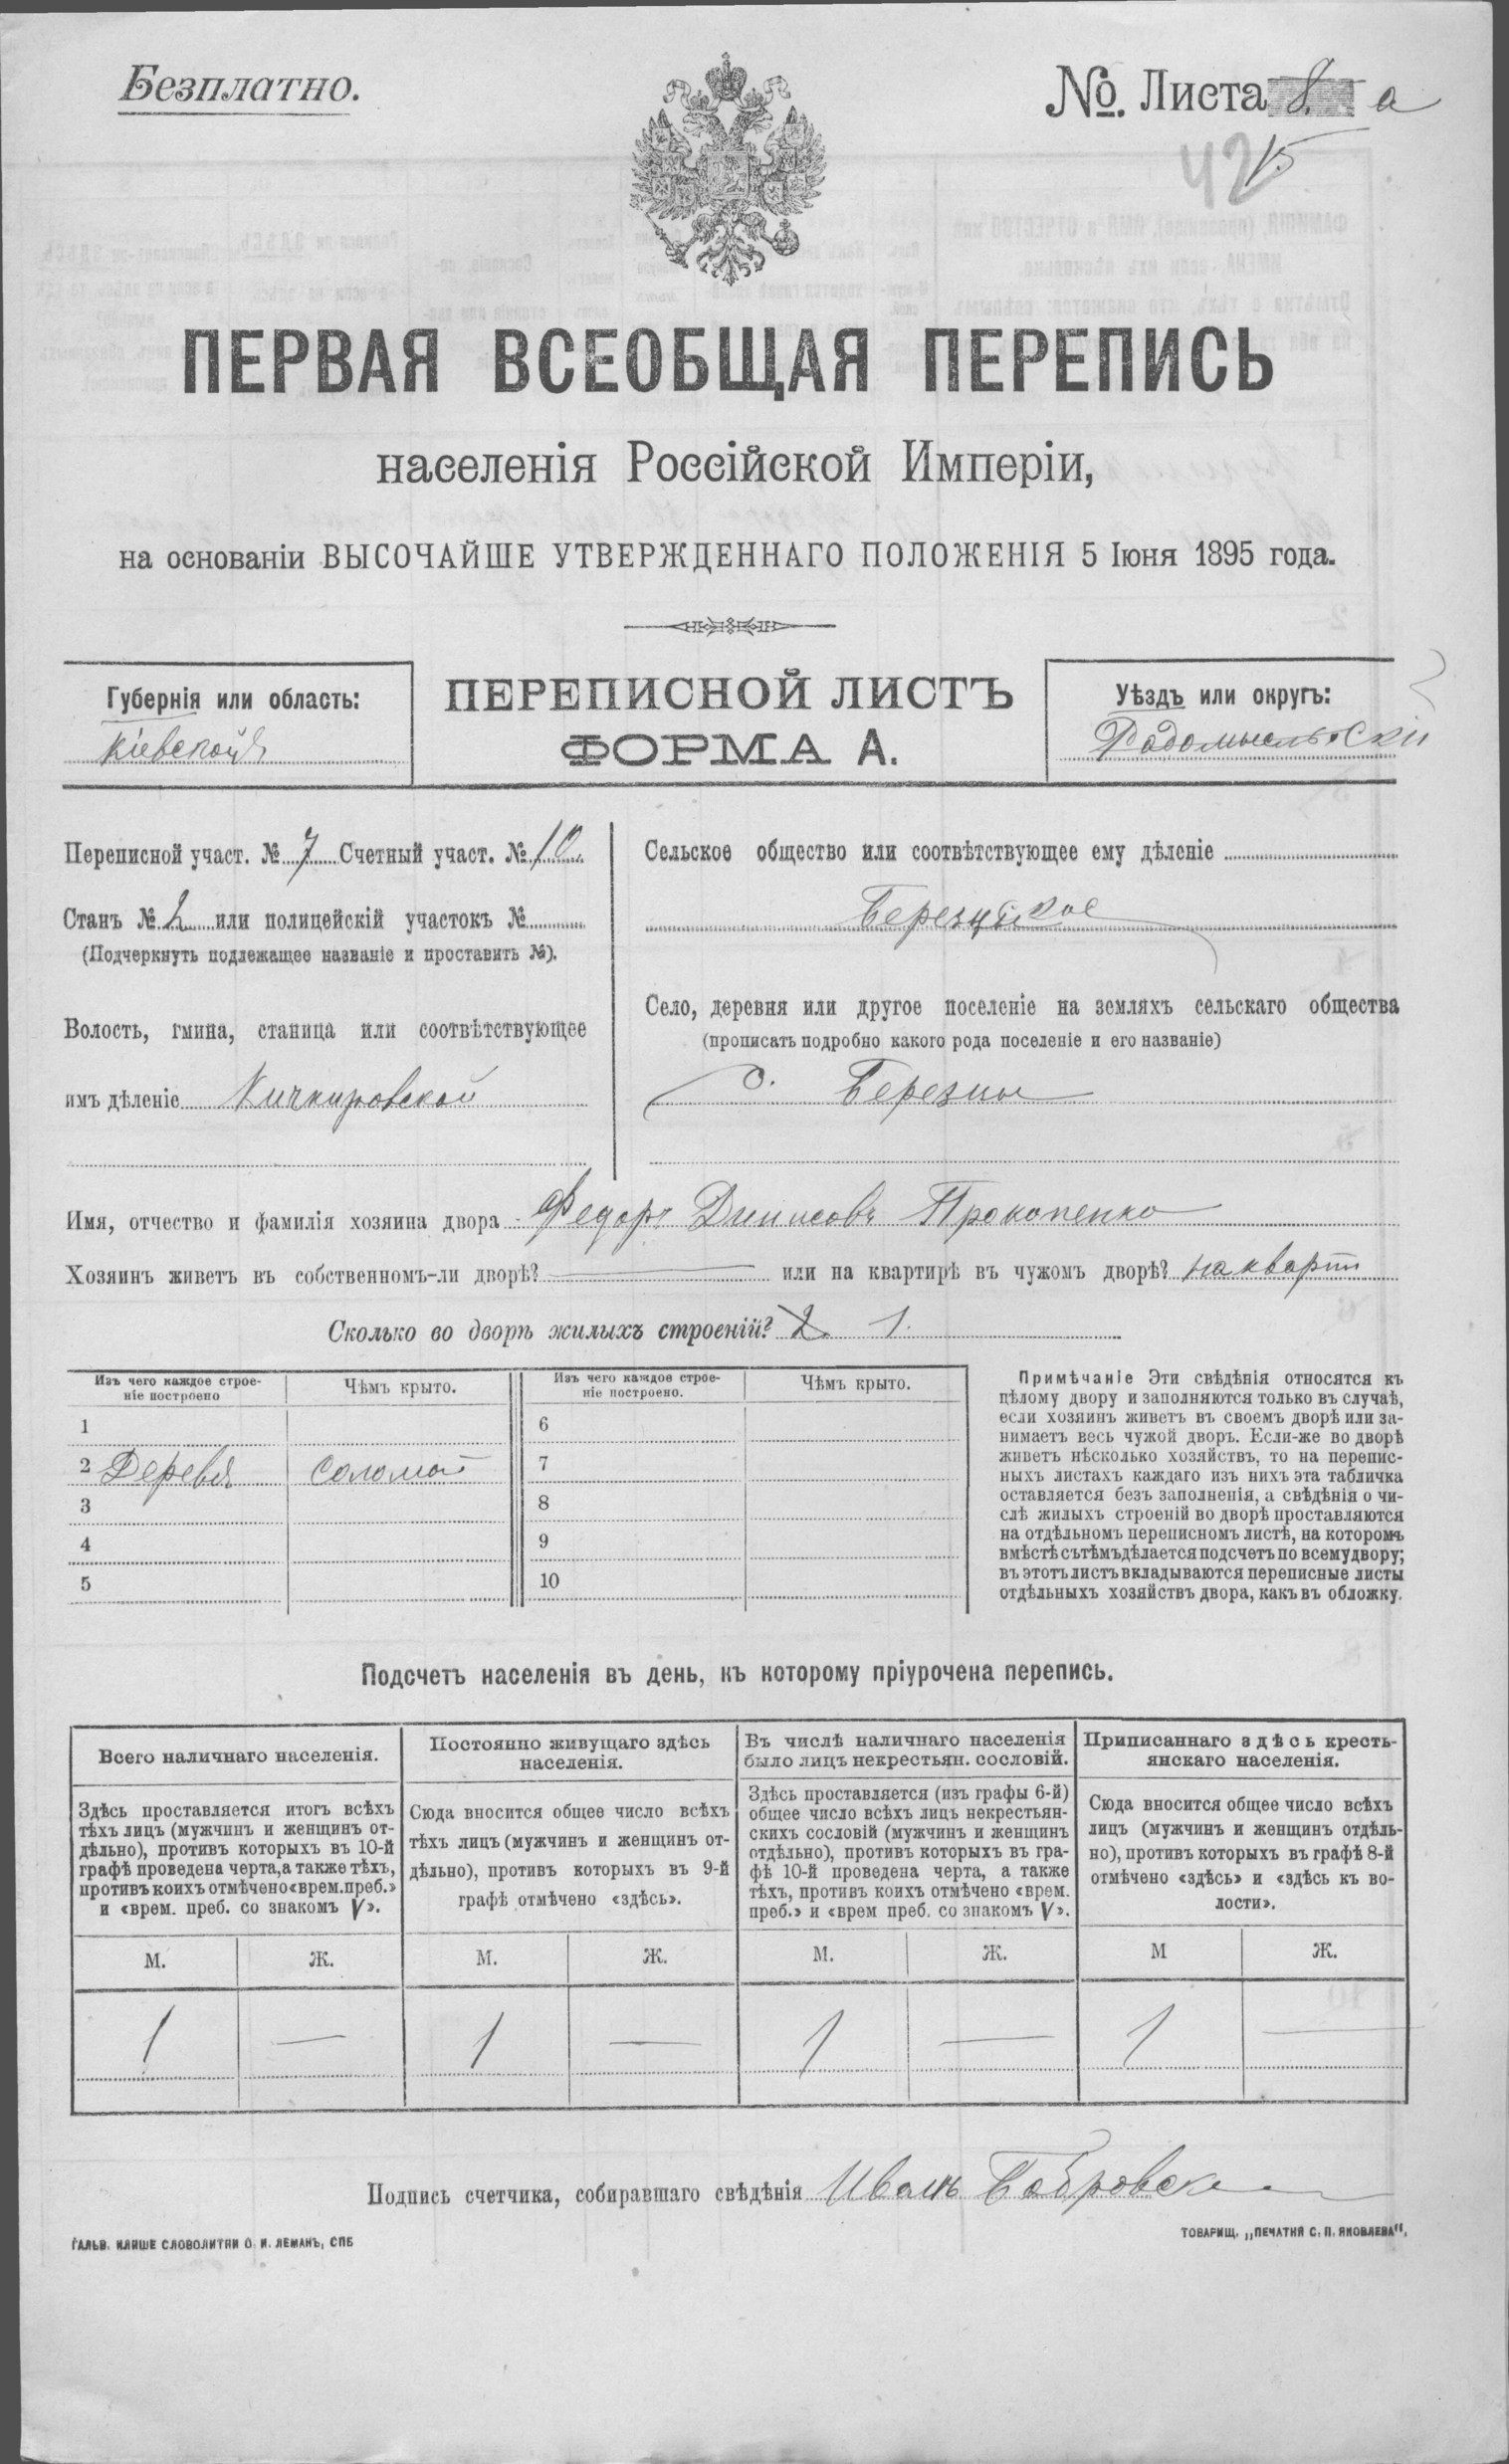 Безплатно.
№. Листа 8. а
42 15
ПЕРВАЯ ВСЕОБЩАЯ ПЕРЕПИСЬ
населенія Россійской Имперіи,
на основаніи ВЫСОЧАЙШЕ УТВЕРЖДЕННАГО ПОЛОЖЕНІЯ 5 Іюня 1895 года.
Губернія или область:
Кіевской
ПЕРЕПИСНОЙ ЛИСТЪ
ФОРМА А.
Уѣздъ или округъ:
Радомысльскій
Переписной участ. № 7 Счетный участ. № 10.
Станъ № 2 или полицейскій участокъ №
(Подчеркнуть подлежащее названіе и проставить №).
Волость, гмина, станица или соотвѣтствующее
имъ дѣленіе Кичкировской
Сельское общество или соотвѣтствующее ему дѣленіе
Березцкое
Село, деревня или другое поселеніе на земляхъ сельскаго общества
(прописать подробно какого рода поселеніе и его названіе)
д. Березцы
Имя, отчество и фамилія хозяина двора Федоръ Динисовъ Прокопенко
Хозяинъ живетъ въ собственномъ-ли дворѣ? или на квартирѣ въ чужомъ дворѣ? на кварти
Сколько во дворѣ жилыхъ строеній? 2. 1.
Изъ чего каждое строе-
ніе построено
Чѣмъ крыто.
Изъ чего каждое строе-
ніе построено.
Чѣмъ крыто.
1
6
2 Дерева соломой
7
3
8
4
9
5
10
Примѣчаніе Эти свѣдѣнія относятся къ
цѣлому двору и заполняются только въ случаѣ,
если хозяинъ живетъ въ своемъ дворѣ или за-
нимаетъ весь чужой дворъ. Если-же во дворѣ
живетъ нѣсколько хозяйствъ, то на перепис-
ныхъ листахъ каждаго изъ нихъ эта табличка
оставляется безъ заполненія, а свѣдѣнія о чи-
слѣ жилыхъ строеній во дворѣ проставляются
на отдѣльномъ переписномъ листѣ, на которомъ
вмѣстѣ съ тѣмъ дѣлается подсчетъ по всему двору;
въ этотъ листъ вкладываются переписные листы
отдѣльныхъ хозяйствъ двора, какъ въ обложку.
Подсчетъ населенія въ день, къ которому пріурочена перепись.
Всего наличнаго населенія.
Здѣсь проставляется итогъ всѣхъ
тѣхъ лицъ (мужчинъ и женщинъ от-
дѣльно), противъ которыхъ въ 10-й
графѣ проведена черта, а также тѣхъ,
противъ коихъ отмѣчено «врем. преб.»
и «врем. преб. со знакомъ V».
М. Ж.
1 —
Постоянно живущаго здѣсь
населенія.
Сюда вносится общее число всѣхъ
тѣхъ лицъ (мужчинъ и женщинъ от-
дѣльно), противъ которыхъ въ 9-й
графѣ отмѣчено «здѣсь».
М. Ж.
1 —
Въ числѣ наличнаго населенія
было лицъ некрестьян. сословій.
Здѣсь проставляется (изъ графы 6-й)
общее число всѣхъ лицъ некрестьян-
скихъ сословій (мужчинъ и женщинъ
отдѣльно), противъ которыхъ въ гра-
фѣ 10-й проведена черта, а также
тѣхъ, противъ коихъ отмѣчено «врем.
преб.» и «врем преб. со знакомъ V».
М. Ж.
1 —
Приписаннаго здѣсь кресть-
янскаго населенія.
Сюда вносится общее число всѣхъ
лицъ (мужчинъ и женщинъ отдѣль-
но), противъ которыхъ въ графѣ 8-й
отмѣчено «здѣсь» и «здѣсь къ во-
лости».
М Ж.
1 —
Подпись счетчика, собиравшаго свѣдѣнія Иванъ Бобровск
ГАЛЬВ. КЛИШЕ СЛОВОЛИТНИ О. И. ЛЕМАНЪ, СПБ
ТОВАРИЩ. „ПЕЧАТНЯ С. П. ЯКОВЛЕВА“.